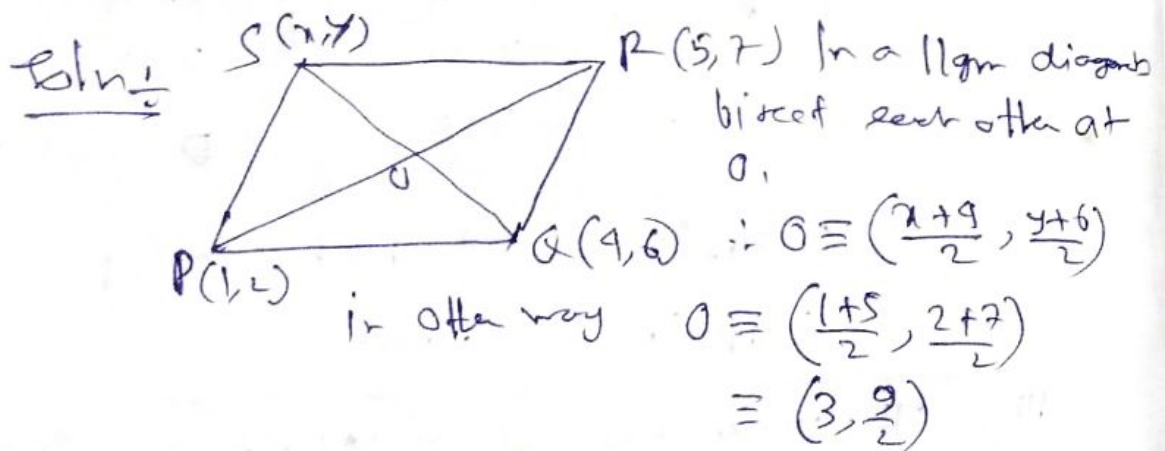 Soln :-
S(x,y)
R(5,7) In a ||gm diagonals
bisect each other at
O.
P(1,2)
Q(4,6) ∴ O ≡ ((x+4)/2, (y+6)/2)
O
in other way O ≡ ((1+5)/2, (2+7)/2)
≡ (3, 9/2)